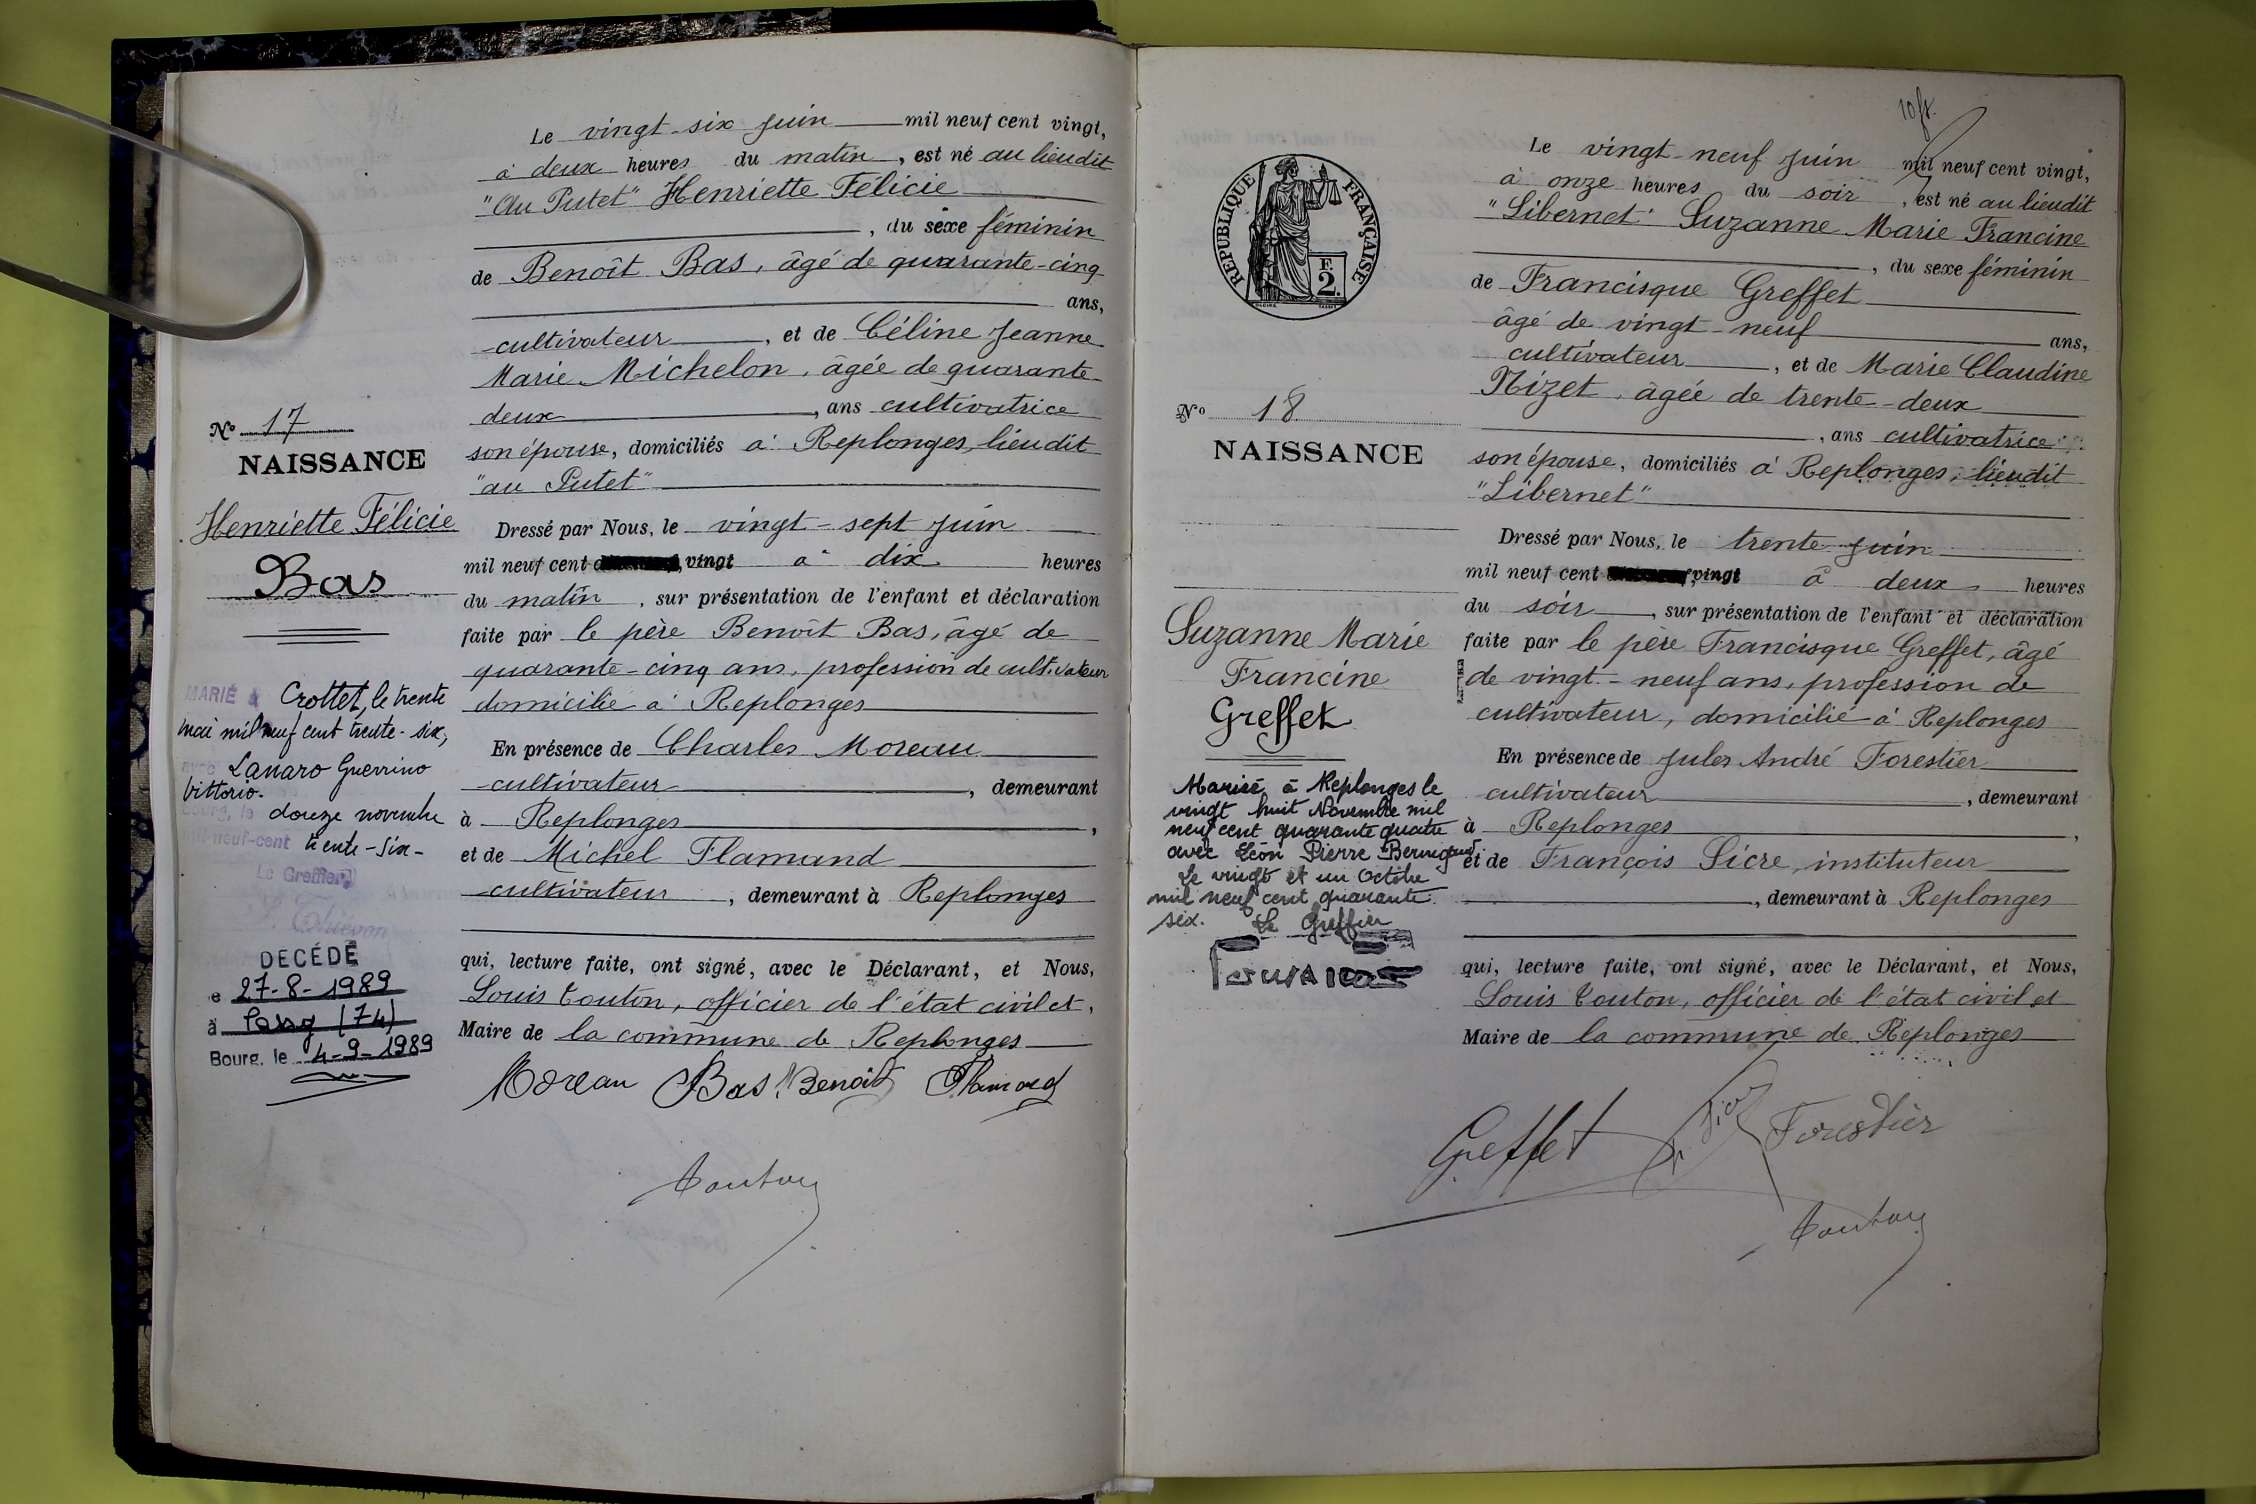 Le vingt-six juin mil neuf cent vingt,
à deux heures du matin, est né au lieudit
"Au Putet" Henriette Félicie
, du sexe féminin
de Benoît Bas, âgé de quarante-cinq
ans,
cultivateur, et de Céline Jeanne
Marie Michelon, âgée de quarante
deux, ans cultivatrice
son épouse, domiciliés à Replonges, lieudit
"au Putet"
Dressé par Nous, le vingt-sept juin
mil neuf cent vingt à dix heures
du matin, sur présentation de l'enfant et déclaration
faite par le père Benoît Bas, âgé de
quarante-cinq ans, profession de cultivateur
domicilié à Replonges
En présence de Charles Moreau
cultivateur, demeurant
à Replonges,
et de Michel Flamand
cultivateur, demeurant à Replonges
qui, lecture faite, ont signé, avec le Déclarant, et Nous,
Louis Touton, officier de l'état civil et,
Maire de la commune de Replonges
Moreau Bas Benoît Flamand
Touton
No 17
NAISSANCE
Henriette Félicie
Bas
MARIÉ à Crottet, le trente
mai mil neuf cent trente-six,
avec Lanaro Guerrino
Vittorio.
Bourg, le douze novembre
mil-neuf-cent trente-six-
Le Greffier,
DECÉDÉ
le 27-8-1989
à (74)
Bourg, le 4-9-1989
10 ft.
REPUBLIQUE FRANÇAISE
F.
2.
Le vingt-neuf juin mil neuf cent vingt,
à onze heures du soir, est né au lieudit
"Libernet" Suzanne Marie Francine
, du sexe féminin
de Francisque Greffet
âgé de vingt-neuf ans,
cultivateur, et de Marie Claudine
Nizet, âgée de trente-deux
, ans cultivatrice
son épouse, domiciliés à Replonges, lieudit
"Libernet"
Dressé par Nous, le trente juin
mil neuf cent vingt à deux heures
du soir, sur présentation de l'enfant et déclaration
faite par le père Francisque Greffet, âgé
de vingt-neuf ans, profession de
cultivateur, domicilié à Replonges
En présence de Jules André Forestier
cultivateur, demeurant
à Replonges,
et de François Sicre, instituteur
, demeurant à Replonges
qui, lecture faite, ont signé, avec le Déclarant, et Nous,
Louis Touton, officier de l'état civil et
Maire de la commune de Replonges
Greffet Fr Sicre Forestier
Touton
No 18
NAISSANCE
Suzanne Marie
Francine
Greffet
Mariée à Replonges le
vingt huit Novembre mil
neuf cent quarante quatre
avec Léon Pierre
Le vingt et un Octobre
mil neuf cent quarante
six. Le Greffier